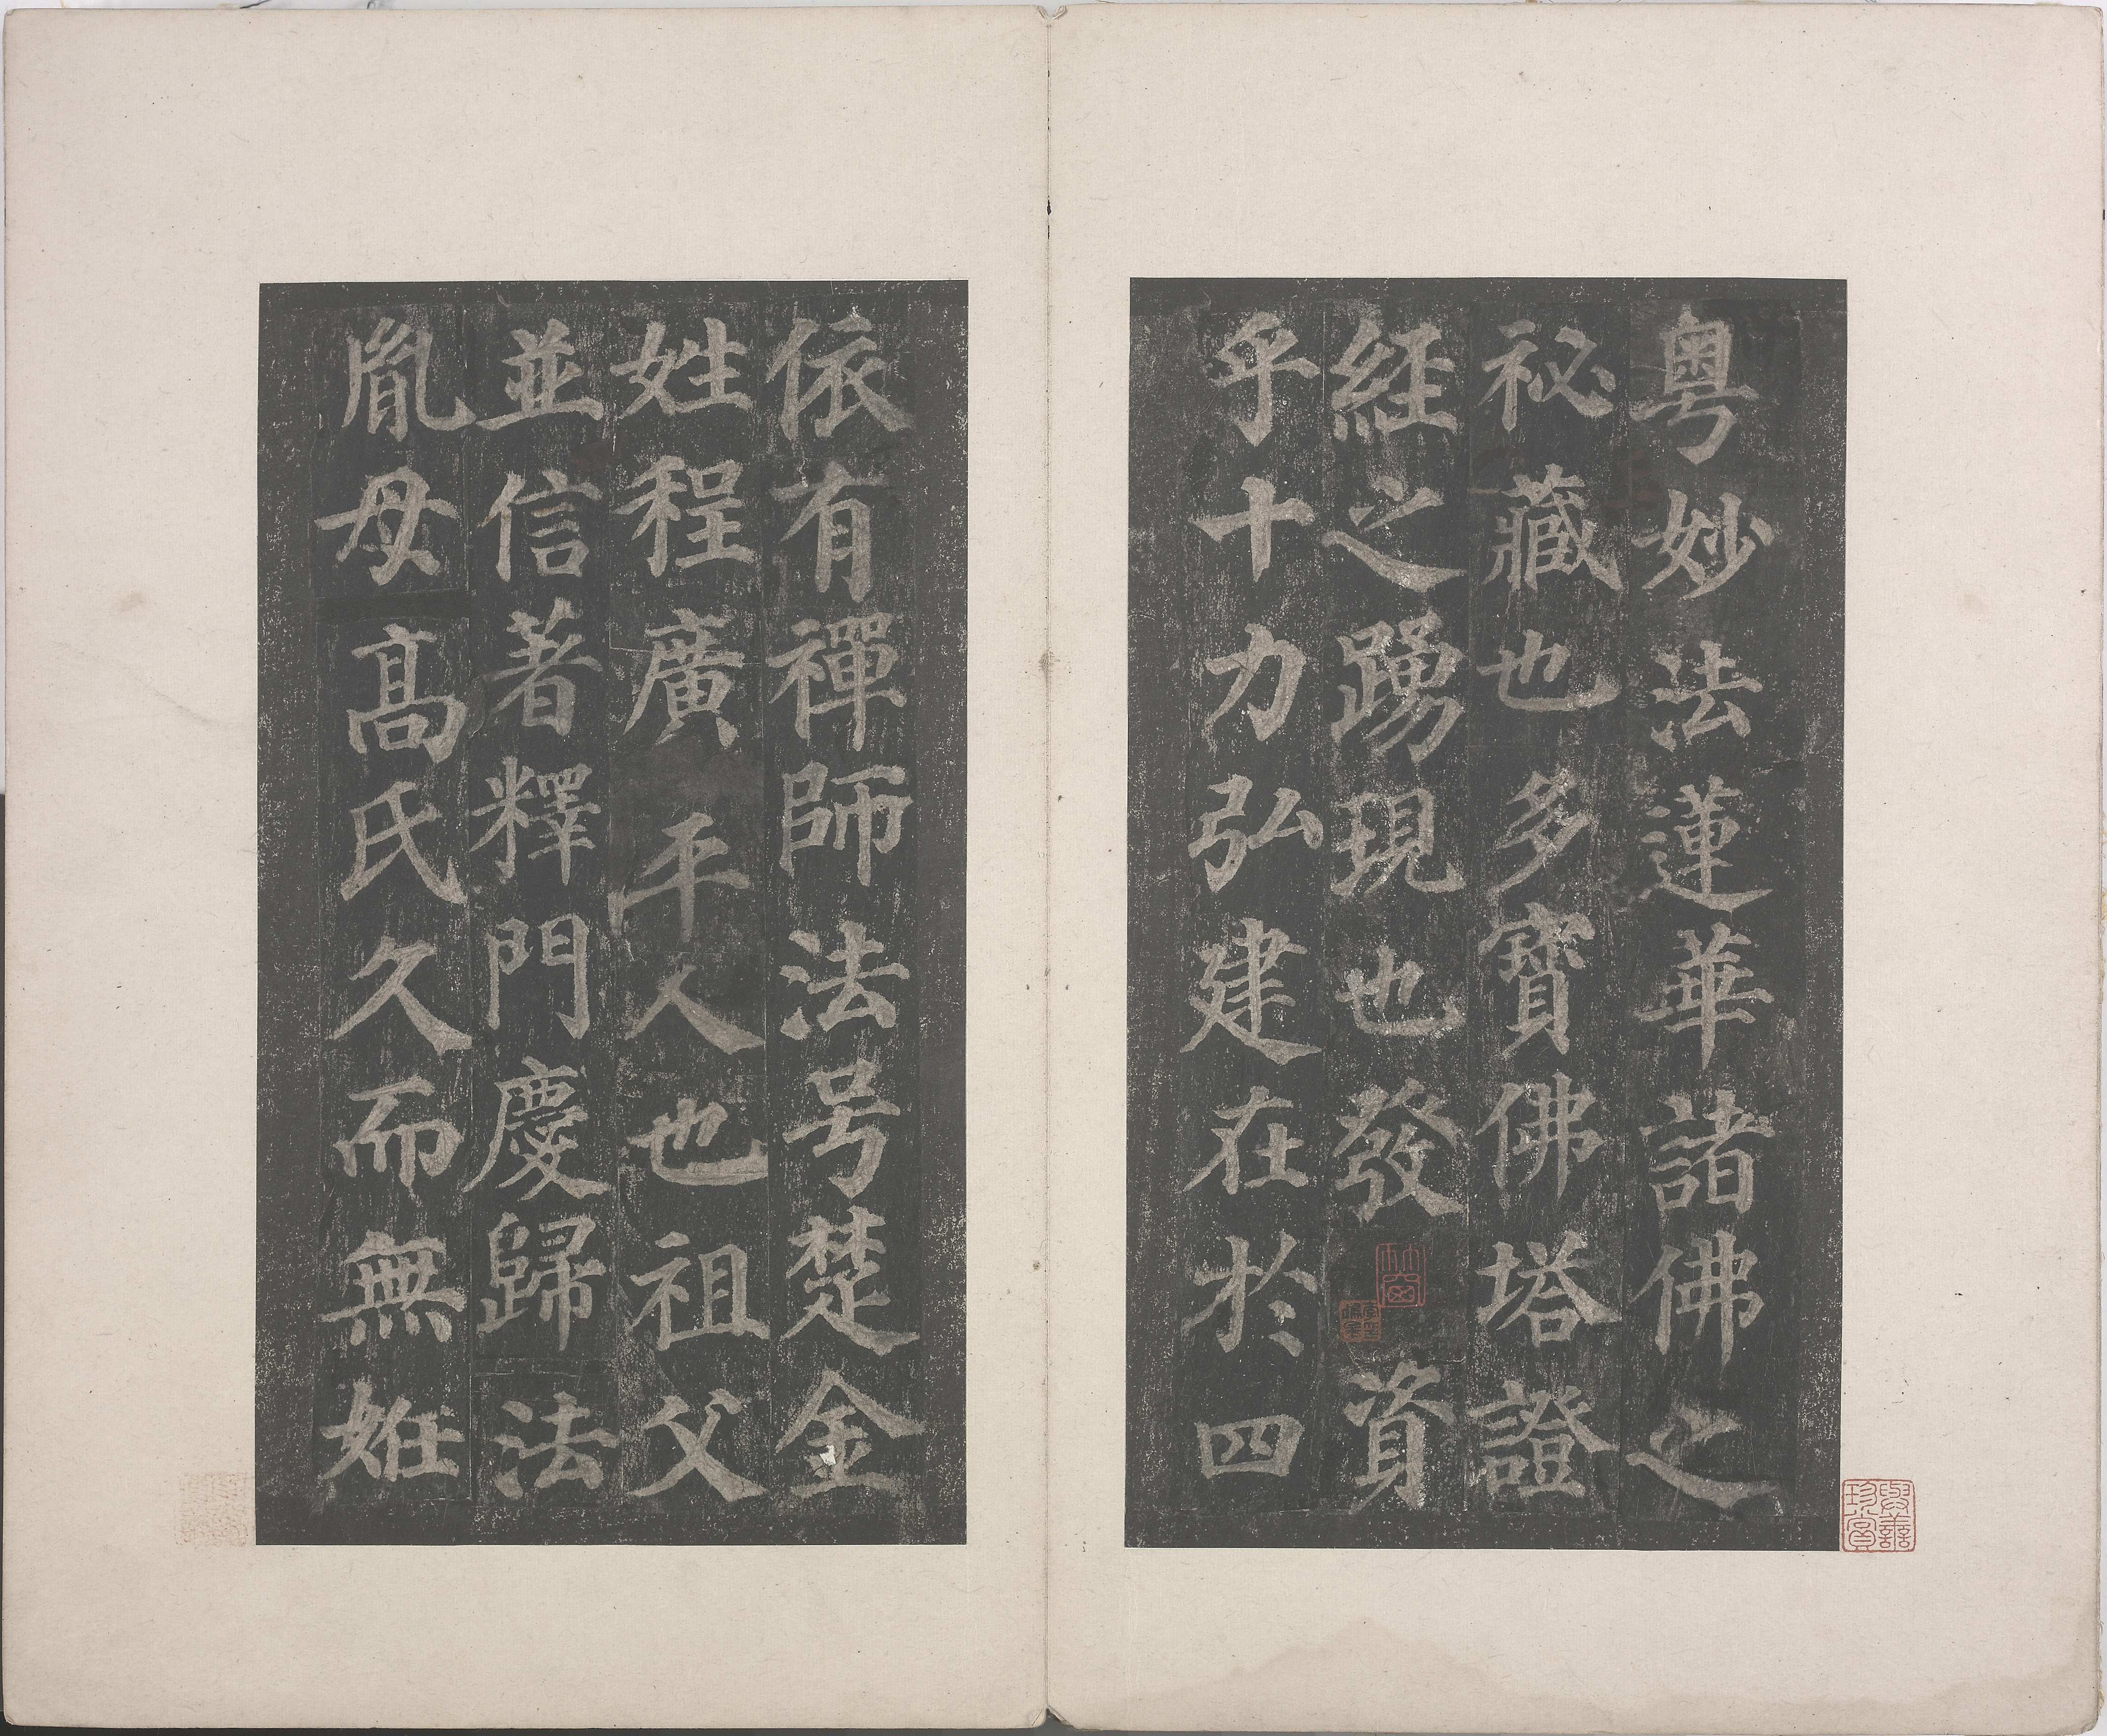 粤妙法蓮華諸佛之
祕藏也多寶佛塔證
經之踴現也發資
乎十力弘建在於四
依有禪師法号楚金
姓程廣平人也祖父
並信著釋門慶歸法
胤母高氏久而無姙